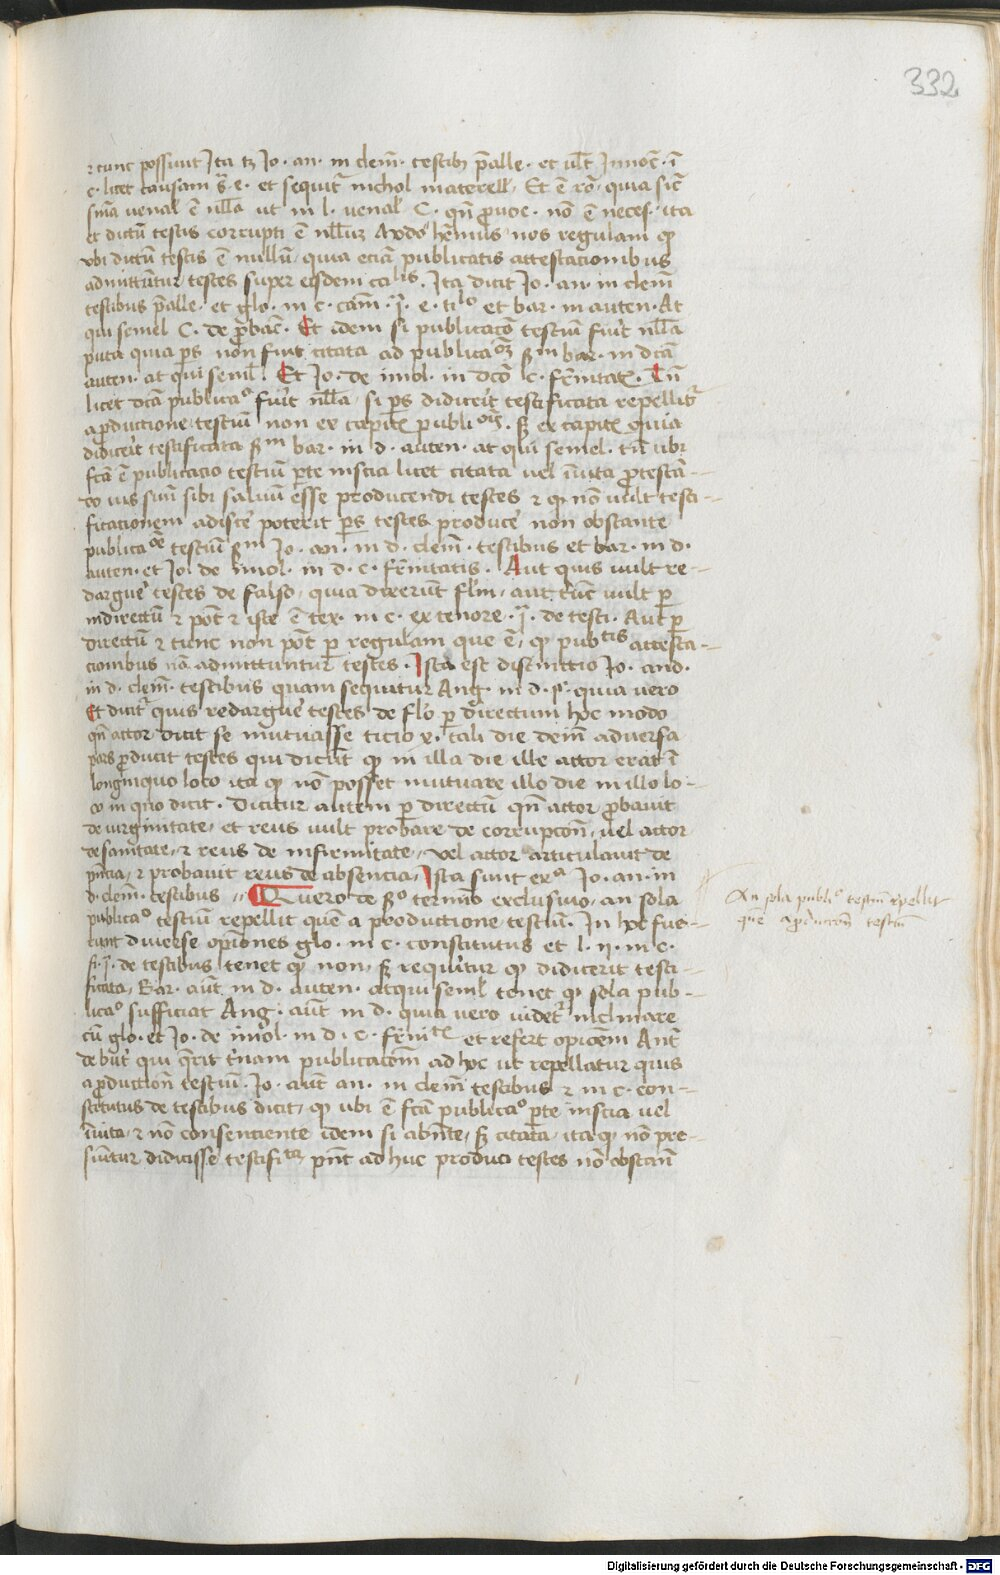 332
⁊ tunc possunt Ita tꝫ Jo. an. in clem̄. testibꝫ p̄alle. et vl̄t Innoc̄. ī
c. licet causam s̄. e. et sequit᷑ nichol materell. Et ē rō, quia sic̄
sīna venal̄ ē nll̄a ut in l. venal̄ C. qn̄ ꝓvoc. nō ē neces. ita
et dictū testis corrupti ē nll̄ius Modo hēmus nos regulam qꝫ
vbi dictū testis ē nullū, quia eciam publicatis attestacionibus
admittūtur testes super eisdem ca lis. Ita dicit Jo. an. in clem̄
testibus p̄alle. et glo. in c. cām. ī. e. ti lo et bar. in auten. At
qui semel C. de ꝓbac̄. Et idem si publicacō testiū fuit nll̄a
puta quia ps̄ non fuit citata ad publica oꝫ s̄m bar. in dc̄ā
auten. at qui semel. Et Jo. de imol. in dc̄o c. fr̄nitat. Tn̄
licet dc̄ā publicaº fuīt nll̄a, si ps̄ didiceīt testificata repellit᷑
a ꝓductione testiū non ex capite publi oīs. sꝫ ex capite quia
didiceīt testificata s̄m bar. in d. auten. at qui semel. tn̄ ubi
fc̄ā ē publicatio testiū p̄te inscia licet citata vel īuita ꝓtestā-
do ius suū sibi saluū esse producendi testes ⁊ qꝫ nō vult testi-
ficationem adisce᷑ poterit ps̄ testes produce᷑ non obstante
publica oē testiū s̄m Jo. an. in d. clem̄. testibus et bar. in d.
auten. et Jo. de imol. in d. c. fr̄nitatis. Aut quis vult re-
dargue᷑ testes de falso, quia dixerunt fl̄m, aut tūc vult ꝑ
indirectū ⁊ pōt ⁊ iste ē tex. in c. ex tenore. ī. de testi. Aut ꝑ
directū ⁊ tunc non pōt ꝑ regulam que ē, qꝫ pub tis attesta-
cionibus nō admittuntur testes. Ista est distinctio Jo. and.
in d. clem̄. testibus quam sequitur Ang. in d. §. quia vero
Et dicit᷑ quis redargue᷑ testes de fl̄o ꝑ directum hoc modo
qn̄ actor dicit se mutuasse ticio x. tali die demū aduersa
pars ꝓducit testes qui dicūt qꝫ in illa die ille actor erat ī
longinquo loco ita qꝫ nō posset mutuare illo die in illo lo-
co in quo dicit. Dicitur autem ꝑ directū qn̄ actor ꝓbauit
de virginitate, et reus vult probare de corrupcōn, vel actor
de sanitate, ⁊ reus de infirmitate, vel actor articulauit de
pn̄cia, ⁊ probauit reus de absencia, Ista sunt ex ª Jo. an. in
d. clem̄. testibus. Quero de sº termīo exclusiuo, an sola
publicaº testiū repellit quē a productione testiū. In hoc fue-
runt diuerse opiniones glo. in c. constitutus et l. ij. in c.
fi. ī. de testibus tenet qꝫ non, sꝫ requīritur qꝫ didicerit testi-
ficata, Bar. aūt in d. auten. atqui semel tenet qꝫ sola pub-
licaº sufficiat Ang. aūt in d. quia vero videt᷑ inclinare
cū glo. et Jo. de imol. in d. c. fr̄ni te et refert opioēm Ant̄
de but᷑ qui q̄rit t̄nam publicatōem ad hoc ut repellatur quis
a ꝓductiōn testiū. Jo. aūt an. in clem̄ testibus ⁊ in c. con-
stitutus de testibus dicit, qꝫ ubi ē fc̄ā publicaº p̄te inscia vel
īuita, ⁊ nō consenciente idem si abn̄te, sꝫ citata, ita qꝫ nō pre-
sūitur didicisse testifi ta, pn̄t ad huc produci testes nō obstan̄
An sola publiº testium repellit
quē a ꝓductiōn testium
Digitalisierung gefördert durch die Deutsche Forschungsgemeinschaft - DFG